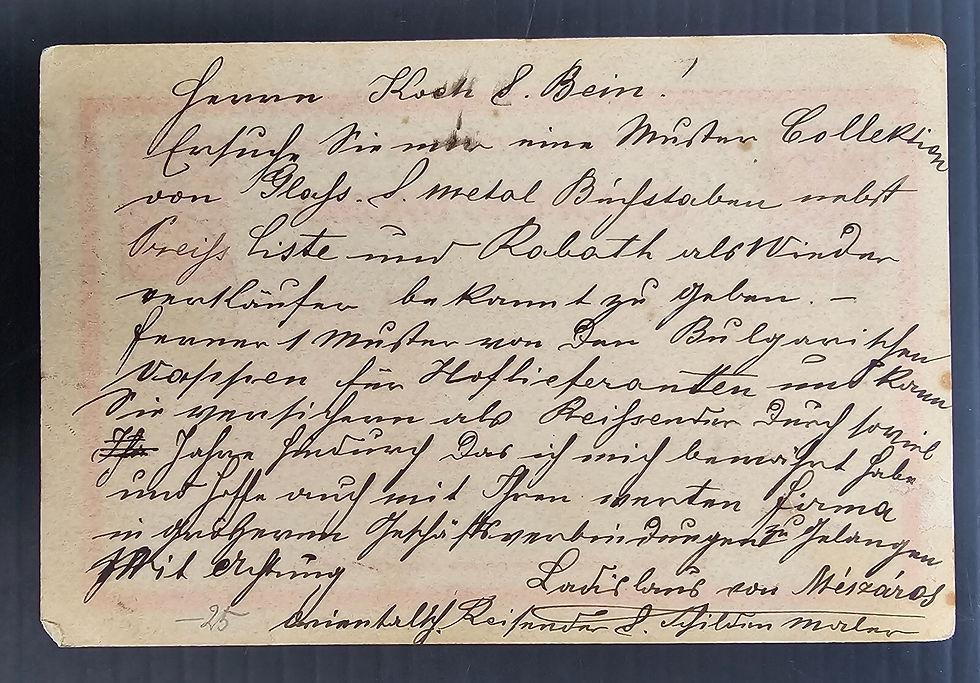 Herrn Koch & Bein!
Ersuche Sie mir eine Muster Collektion
von Glass. & metal Buchstaben nebst
Preiss Liste und Rabath als Wieder
verkläufer bekannt zu geben. –
ferner 1 Muster von Den Bulgarischen
Vappen für Hoflieferanten und kann
Sie versichern als Reissender Durch soviel
Jahre hindurch Das ich mich bewährt habe
und hoffe auch mit Ihren werten firma
in gröherem Geschäftsverbindungen zu Gelangen
Mit Achtung
Ladislaus von Mészáros
orientalh. Reisender & Schilden maler
–25